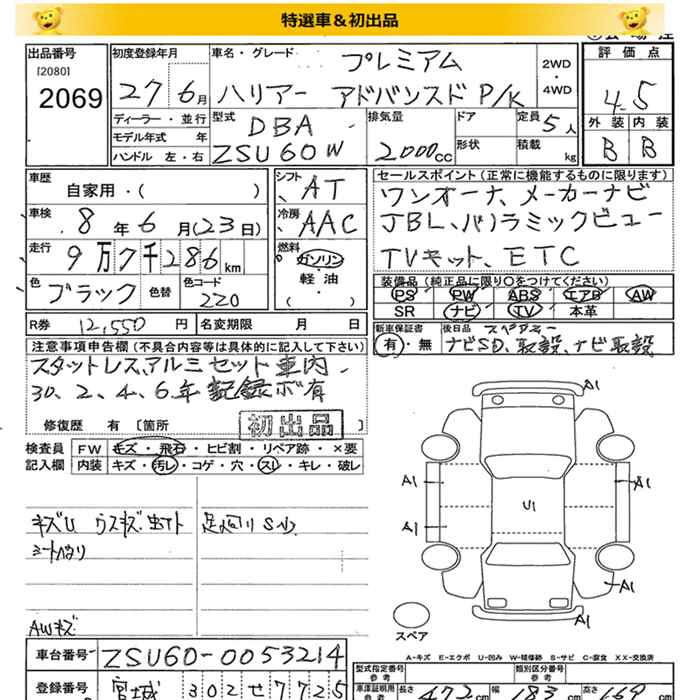 特選車＆初出品
出品番号 [2080] 2069
初度登録年月 27 6月
車名・グレード プレミアム
ハリアー アドバンスド P/K
2WD・4WD
評価点 4.5
外装 内装
B B
ディーラー・並行
モデル年式 年
ハンドル 左・右
型式 DBA
ZSU60W
排気量 2000cc
ドア 形状
定員 5人
積載 kg
車歴 自家用・( )
シフト AT
車検 8年6月(23日)
冷房 AAC
走行 9万7千286km
燃料 ガソリン・軽・油・( )
色 ブラック 色替 色コード 220
R券 12,550円 名変期限 月 日
セールスポイント(正常に機能するものに限ります)
ワンオーナ、メーカーナビ
JBL、パノラミックビュー
TVキット、ETC
装備品(純正品に限り○をつけてください)
PS PW ABS エアB AW
SR ナビ TV 本革
新車保証書 有・無
後日品 スペアキー
ナビSD、取説、ナビ取説
注意事項申告欄(不具合内容等は具体的に記入して下さい)
スタットレス、アルミセット車内
30、2、4、6年記録ボ有
修復歴 有 [箇所 ]
初出品
検査員記入欄
FW キズ・飛石・ヒビ割・リペア跡・×要
内装 キズ・汚レ・コゲ・穴・スレ・キレ・破レ
キズU ウスキズ
足廻りサビ
シートヘタリ
AWキズ
A1
A1
U1
A1
A1
A1
A1
スペア
A-キズ E-エクボ U-凹み W-補修跡 S-サビ C-腐食 XX-交換済
車台番号 ZSU60-0053214
登録番号 宮城 302 せ 7725
型式指定番号 参考
類別区分番号 参考
車庫証明用 参考
長さ 472cm
幅 183cm
高さ 169cm